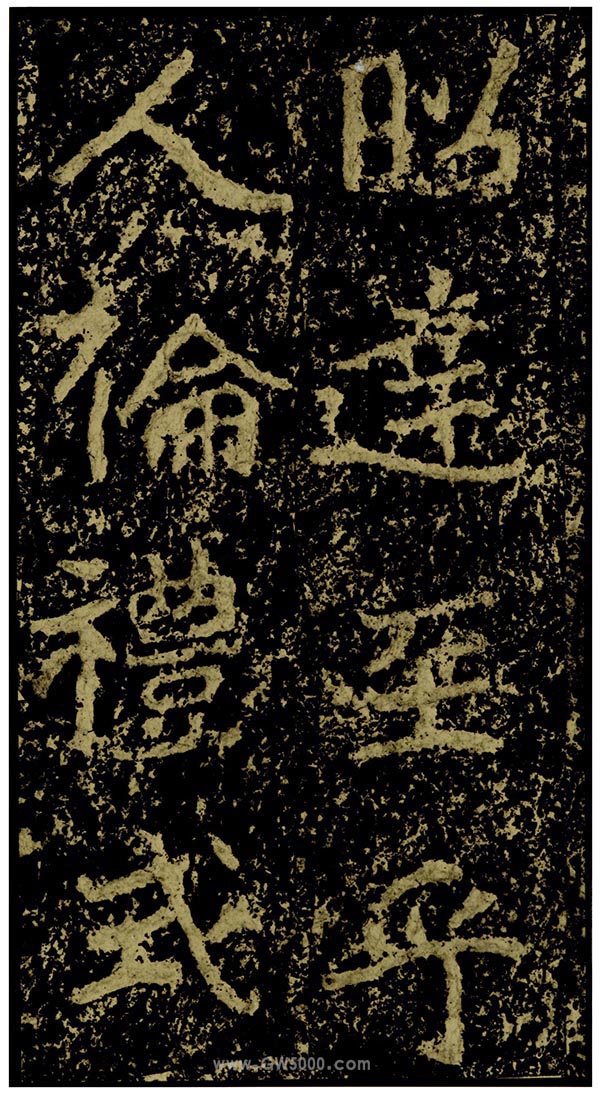 昭達至乎
人倫禮式
www.GW5000.com